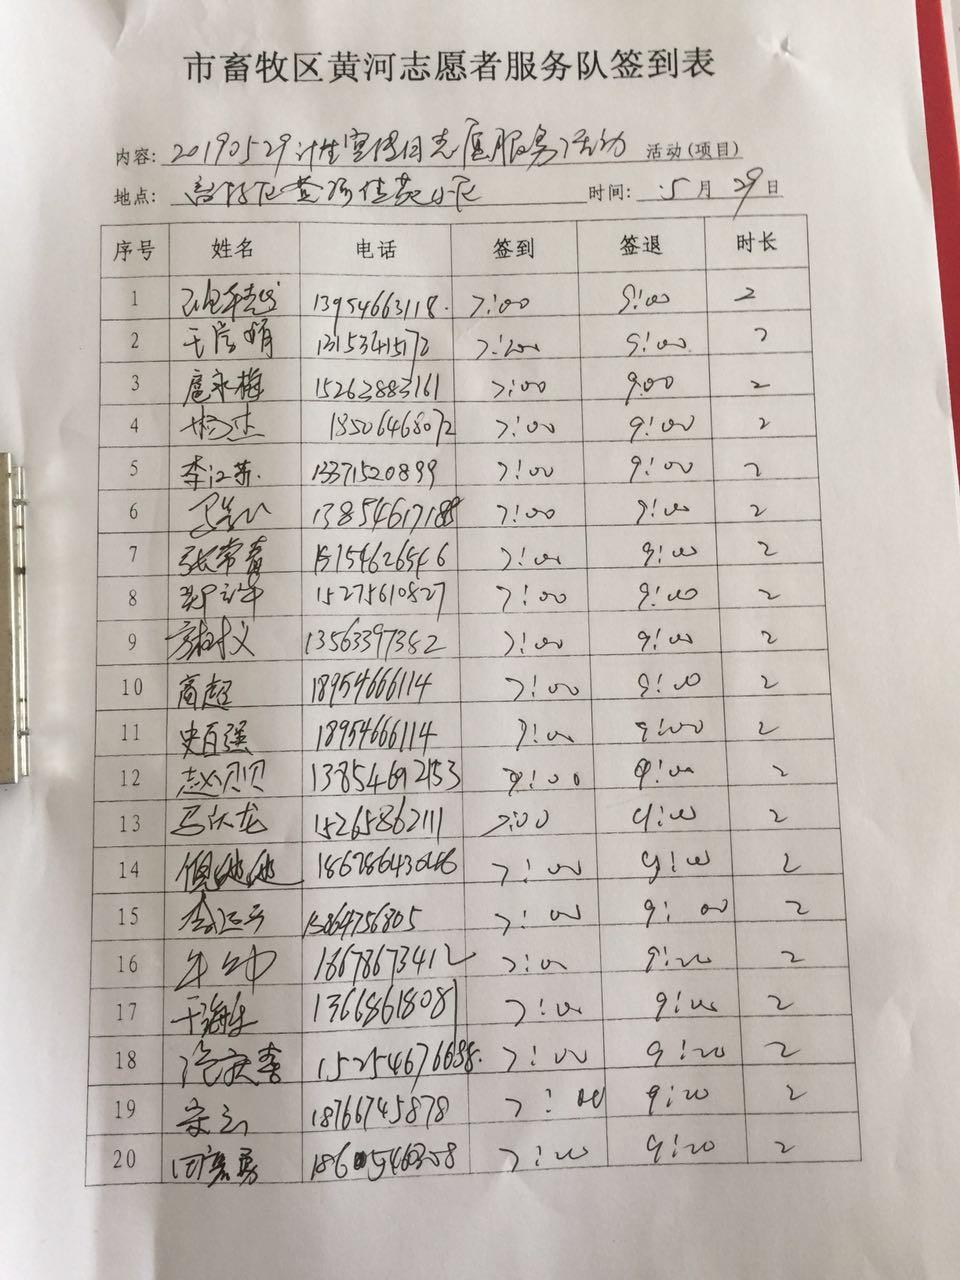 市畜牧区黄河志愿者服务队签到表
内容: 20190529计生宣传日志愿服务活动 活动(项目)
地点: 畜牧区黄河佳苑小区 时间: 5月29日
序号 姓名 电话 签到 签退 时长
1 13954663118 7:00 9:00 2
2 于 娟 13153415172 7:00 9:00 2
3 扈永梅 15263883161 7:00 9:00 2
4 杨杰 18506468072 7:00 9:00 2
5 李江苏 13371520899 7:00 9:00 2
6 7:00 9:00 2
7 张常青 15154626546 7:00 9:00 2
8 15275610827 7:00 9:00 2
9 13563397382 7:00 9:00 2
10 高超 18954666114 7:00 9:00 2
11 史百强 18954666114 7:00 9:00 2
12 赵贝贝 13854692153 9:00 2
13 马庆龙 15265862111 7:00 9:00 2
14 7:00 9:00 2
15 李 15064756805 7:00 9:00 2
16 牛 18678673412 7:00 9:20 2
17 于海生 13668618081 7:00 9:00 2
18 15254676688 7:00 9:20 2
19 宋云 18766745878 7:00 9:20 2
20 田 勇 7:20 9:20 2